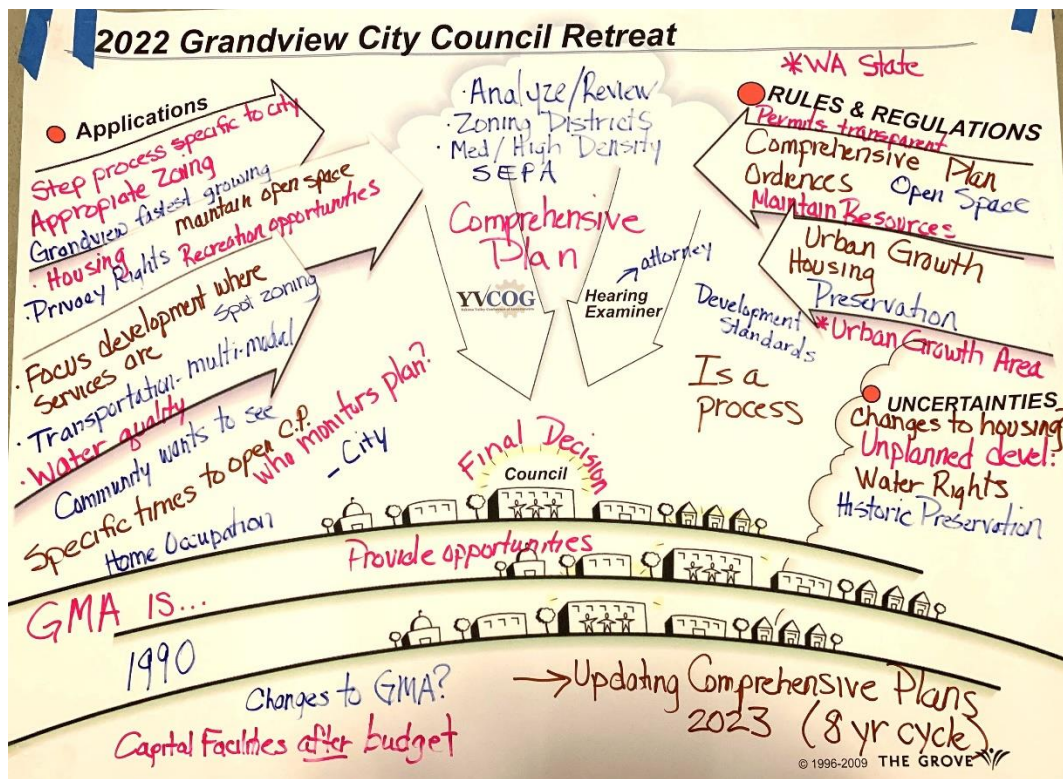 2022 Grandview City Council Retreat
Applications
Step process specific to city
Appropiate Zoing
Grandview fastest growing
maintain open space
· Housing
Privacy Rights Recreation opportunities
· Focus development where
Spot zoning
Services are
· Transportation - multi-modal
· Water quality
Community wants to see
Specific times to open C.P.
Home Occupation
who monitors plan?
- City
· Analyze/Review
· Zoning Districts
· Med/High Density
SEPA
Comprehensive
Plan
YVCOG
attorney
Hearing
Examiner
*WA State
RULES & REGULATIONS
Permits transparent
Comprehensive Plan
Ordiences Open Space
Maintain Resources
Urban Growth
Housing
Preservation
*Urban Growth Area
Development
Standards
Is a
process
UNCERTAINTIES
Changes to housing
Unplanned devel.
Water Rights
Historic Preservation
Final Decision
Council
Provide opportunities
GMA is...
1990
Changes to GMA?
Capital Facilities after budget
→Updating Comprehensive Plans
2023 (8 yr cycle)
© 1996-2009 THE GROVE